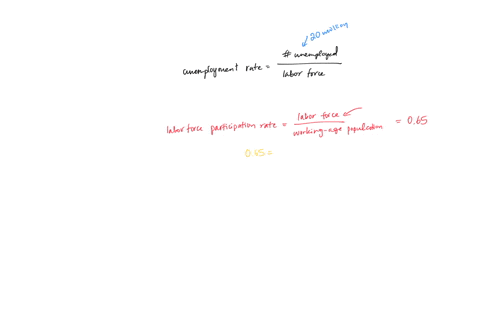 20 million
unemployment rate = # unemployed / labor force
labor force participation rate = labor force / working-age population = 0.65
0.65 =